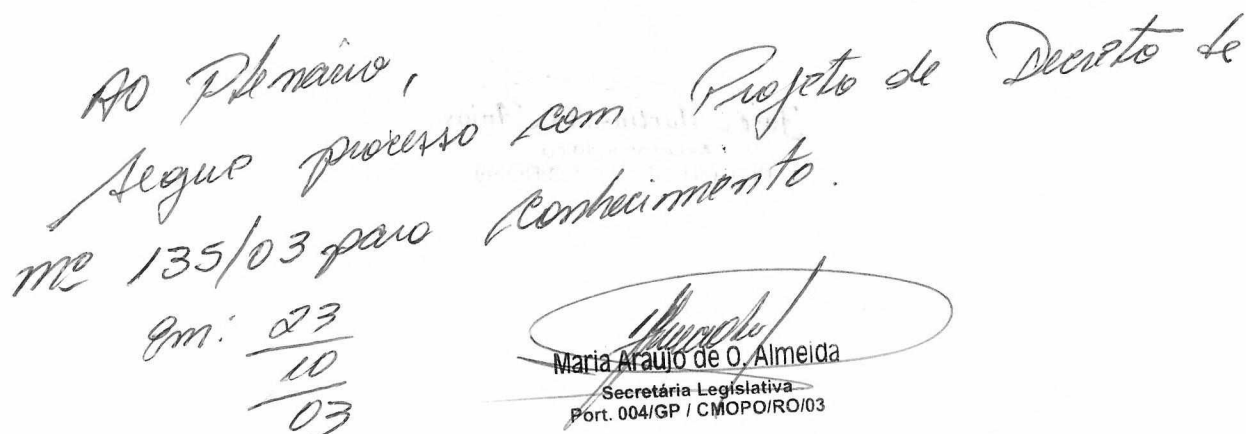 Ao Plenário,
Segue processo com Projeto de Decreto de
nº 135/03 para conhecimento.
Em: 23
10
03
Maria Araújo de O. Almeida
Secretária Legislativa
Port. 004/GP / CMOPO/RO/03